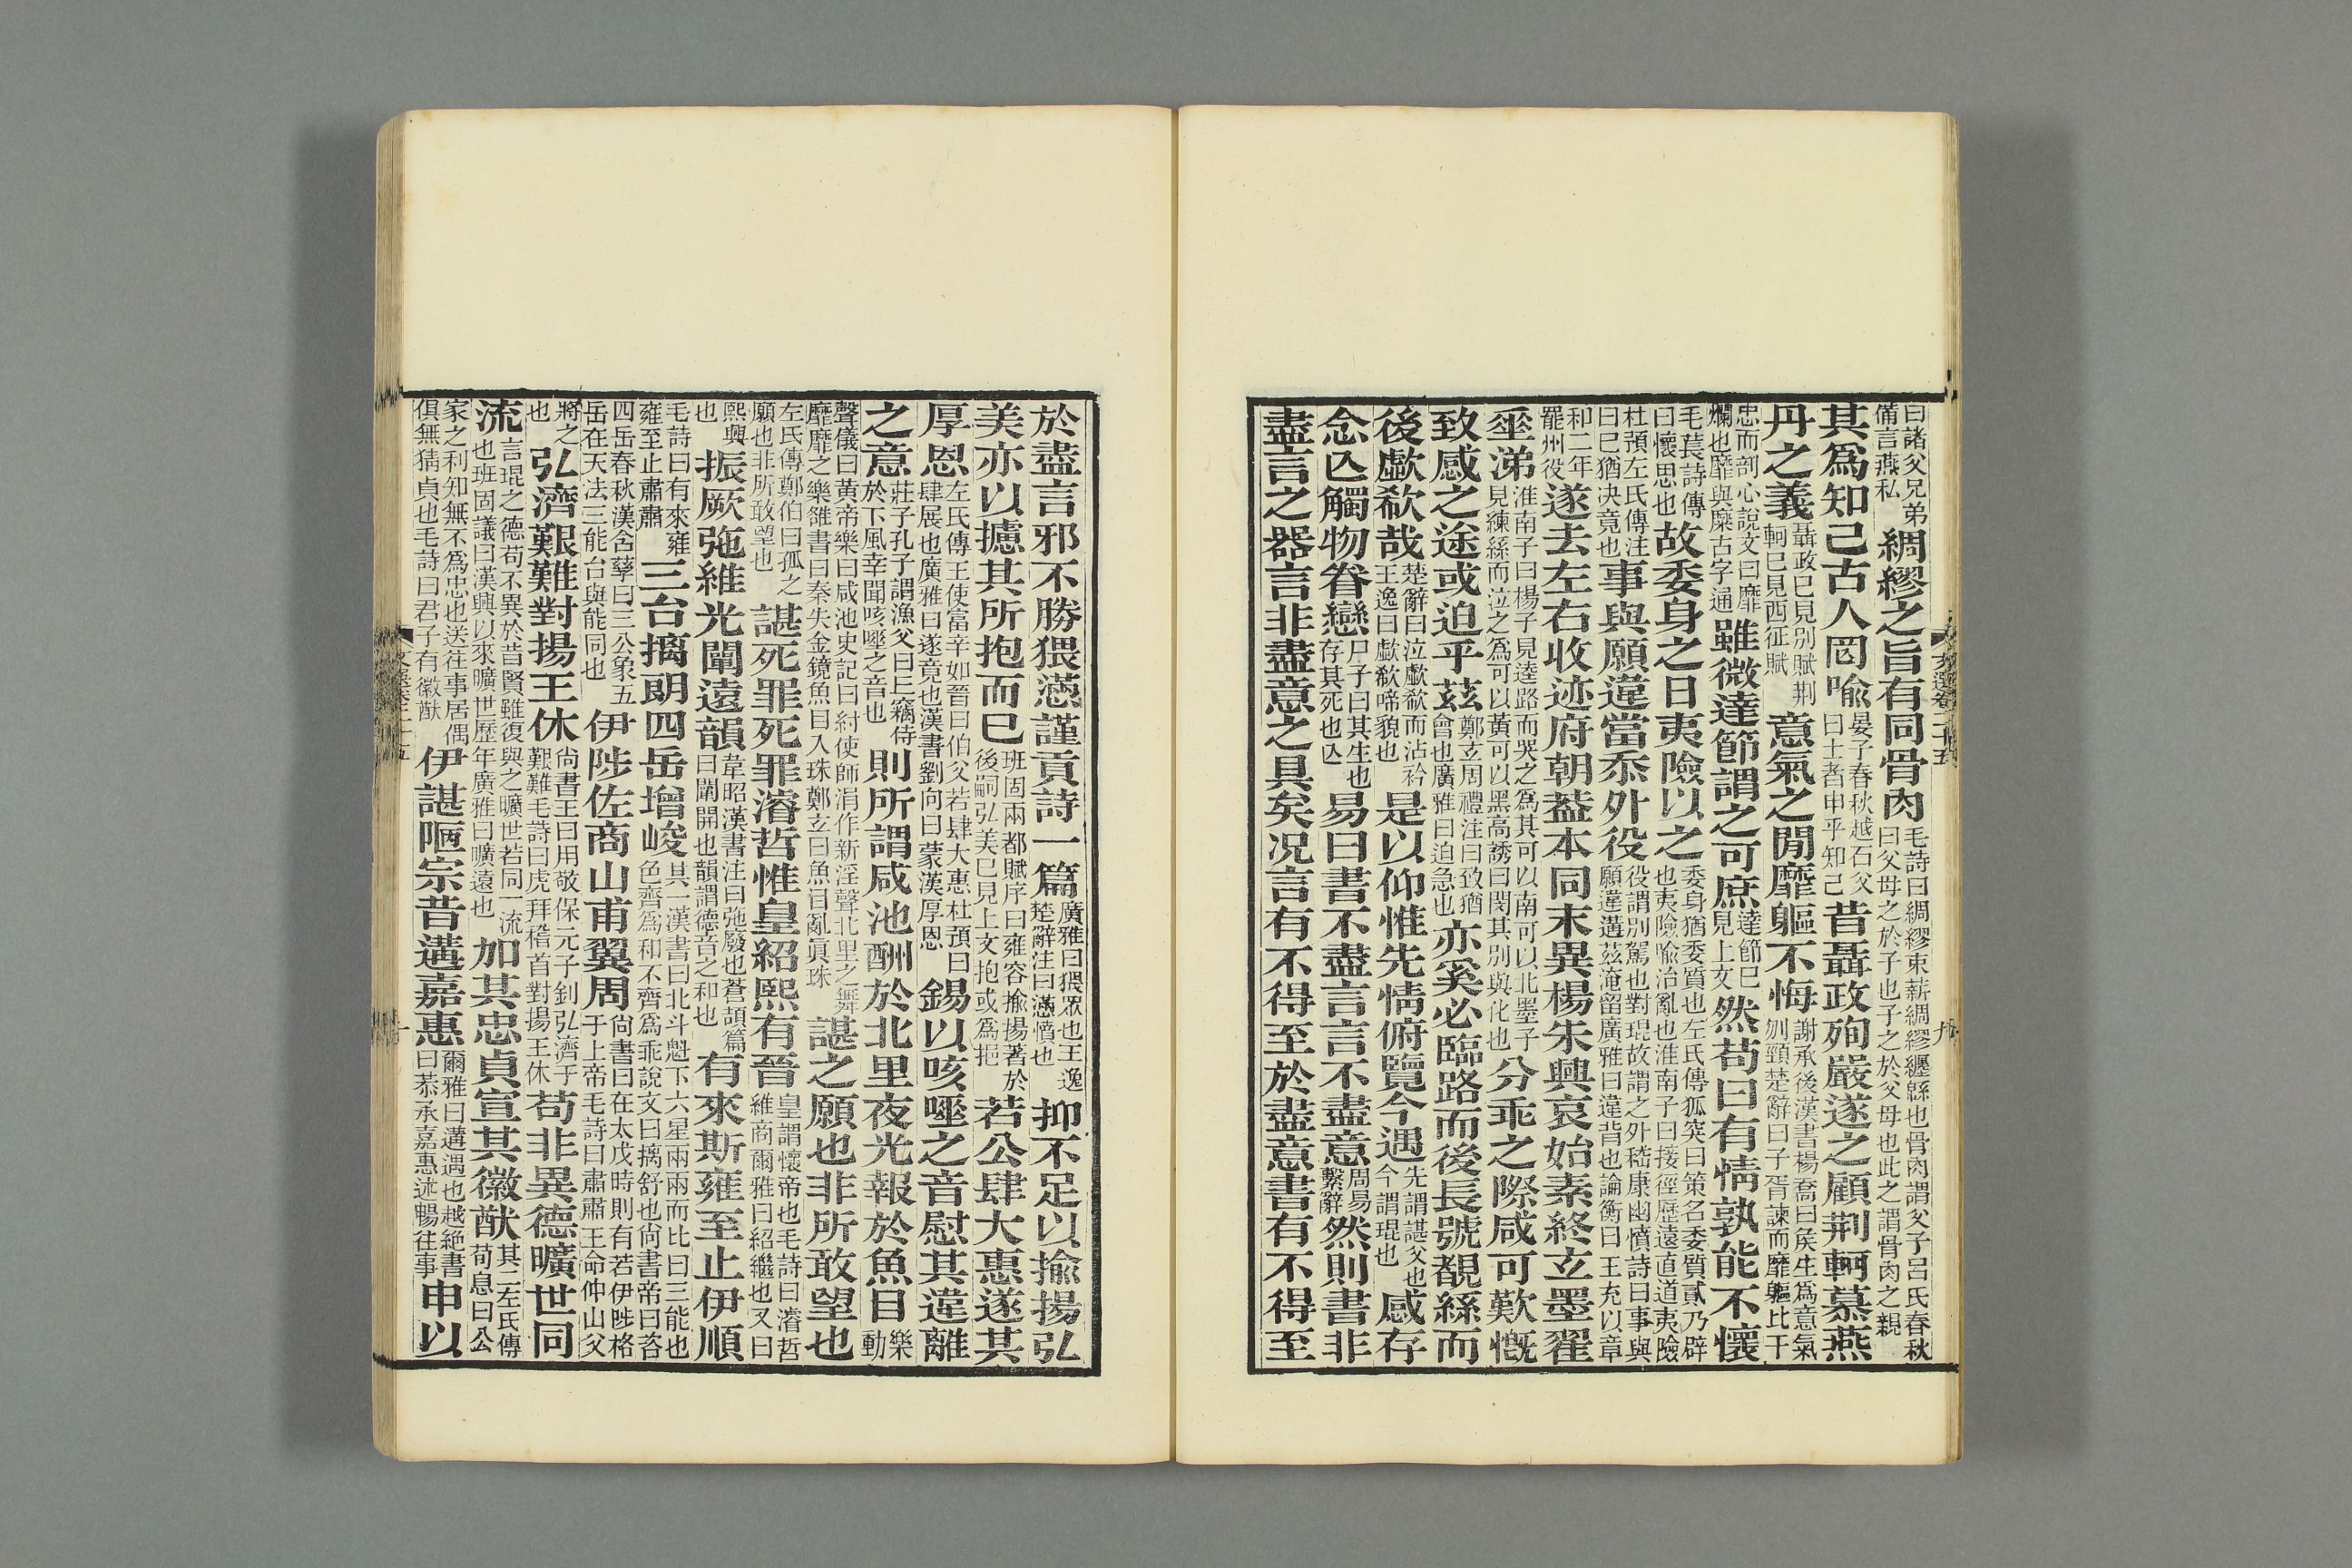 曰諸父兄弟備言燕私綢繆之旨有同骨肉毛詩曰綢繆束薪綢繆纒緜也骨肉謂父子呂氏春秋曰父母之於子也子之於父母也此之謂骨肉之親
其爲知己古人罔喩晏子春秋越石父曰士者申乎知己昔聶政殉嚴遂之顧荆軻慕燕
丹之義聶政已見別賦荆軻已見西征賦意氣之閒靡軀不悔謝承後漢書楊喬曰矦生爲意氣刎頸楚辭曰子胥諫而靡軀比干
忠而剖心說文曰靡爛也靡與糜古字通雖微達節謂之可庶達節已見上文然苟曰有情孰能不懷
毛萇詩傳曰懷思也故委身之日夷險以之委身猶委質也左氏傳狐突曰策名委質貳乃辟也夷險喩治亂也淮南子曰接徑歷遠直道夷險
杜預左氏傳注曰已猶決竟也事與願違當忝外役役謂別駕也對琨故謂之外嵇康幽憤詩曰事與願違遘茲淹留廣雅曰違背也論衡曰王充以章
和二年罷州役遂去左右收迹府朝葢本同末異楊朱興哀始素終玄墨翟
垂涕淮南子曰楊子見逵路而哭之爲其可以南可以北墨子見練絲而泣之爲可以黃可以黑高誘曰閔其別與化也分乖之際咸可歎慨
致感之途或迫乎茲鄭玄周禮注曰致猶會也廣雅曰迫急也亦奚必臨路而後長號覩絲而
後歔欷哉楚辭曰泣歔欷而沾衿王逸曰歔欷啼貌也是以仰惟先情俯覽今遇先謂諶父也今謂琨也感存
念亾觸物眷戀尸子曰其生也存其死也亾易曰書不盡言言不盡意周易繫辭然則書非
盡言之器言非盡意之具矣况言有不得至於盡意書有不得至
文選卷二十五
九
於盡言邪不勝猥懣謹貢詩一篇廣雅曰猥眾也王逸楚辭注曰懣憤也抑不足以揄揚弘
美亦以攄其所抱而已班固兩都賦序曰雍容揄揚著於後嗣弘美已見上文抱或爲挹若公肆大惠遂其
厚恩左氏傳王使富辛如晉曰伯父若肆大惠杜預曰肆展也廣雅曰遂竟也漢書劉向曰蒙漢厚恩錫以咳唾之音慰其違離
之意莊子孔子謂漁父曰丘竊侍於下風幸聞咳唾之音也則所謂咸池酬於北里夜光報於魚目樂動
聲儀曰黃帝樂曰咸池史記曰紂使師涓作新淫聲北里之舞靡靡之樂雒書曰秦失金鏡魚目入珠鄭玄曰魚目亂眞珠諶之願也非所敢望也
左氏傳鄭伯曰孤之願也非所敢望也諶死罪死罪濬哲惟皇紹熙有晉皇謂懷帝也毛詩曰濬哲維商爾雅曰紹繼也又曰
熙興也振厥弛維光闡遠韻韋昭漢書注曰弛廢也蒼頡篇曰闡開也韻謂德音之和也有來斯雍至止伊順
毛詩曰有來雍雍至止肅肅三台摛朗四岳增峻其一漢書曰北斗魁下六星兩兩而比曰三能也色齊爲和不齊爲乖說文曰摛舒也尙書帝曰咨
四岳春秋漢含孳曰三公象五岳在天法三能台與能同也伊陟佐商山甫翼周尙書曰在太戊時則有若伊陟格于上帝毛詩曰肅肅王命仲山父
將之也弘濟艱難對揚王休尙書王曰用敬保元子釗弘濟于艱難毛詩曰虎拜稽首對揚王休苟非異德曠世同
流言琨之德苟不異於昔賢雖復與之曠世若同一流也班固議曰漢興以來曠世歷年廣雅曰曠遠也加其忠貞宣其徽猷其二左氏傳荀息曰公
家之利知無不爲忠也送往事居偶俱無猜貞也毛詩曰君子有徽猷伊諶陋宗昔遘嘉惠爾雅曰遘遇也越絶書曰恭承嘉惠述暢往事申以